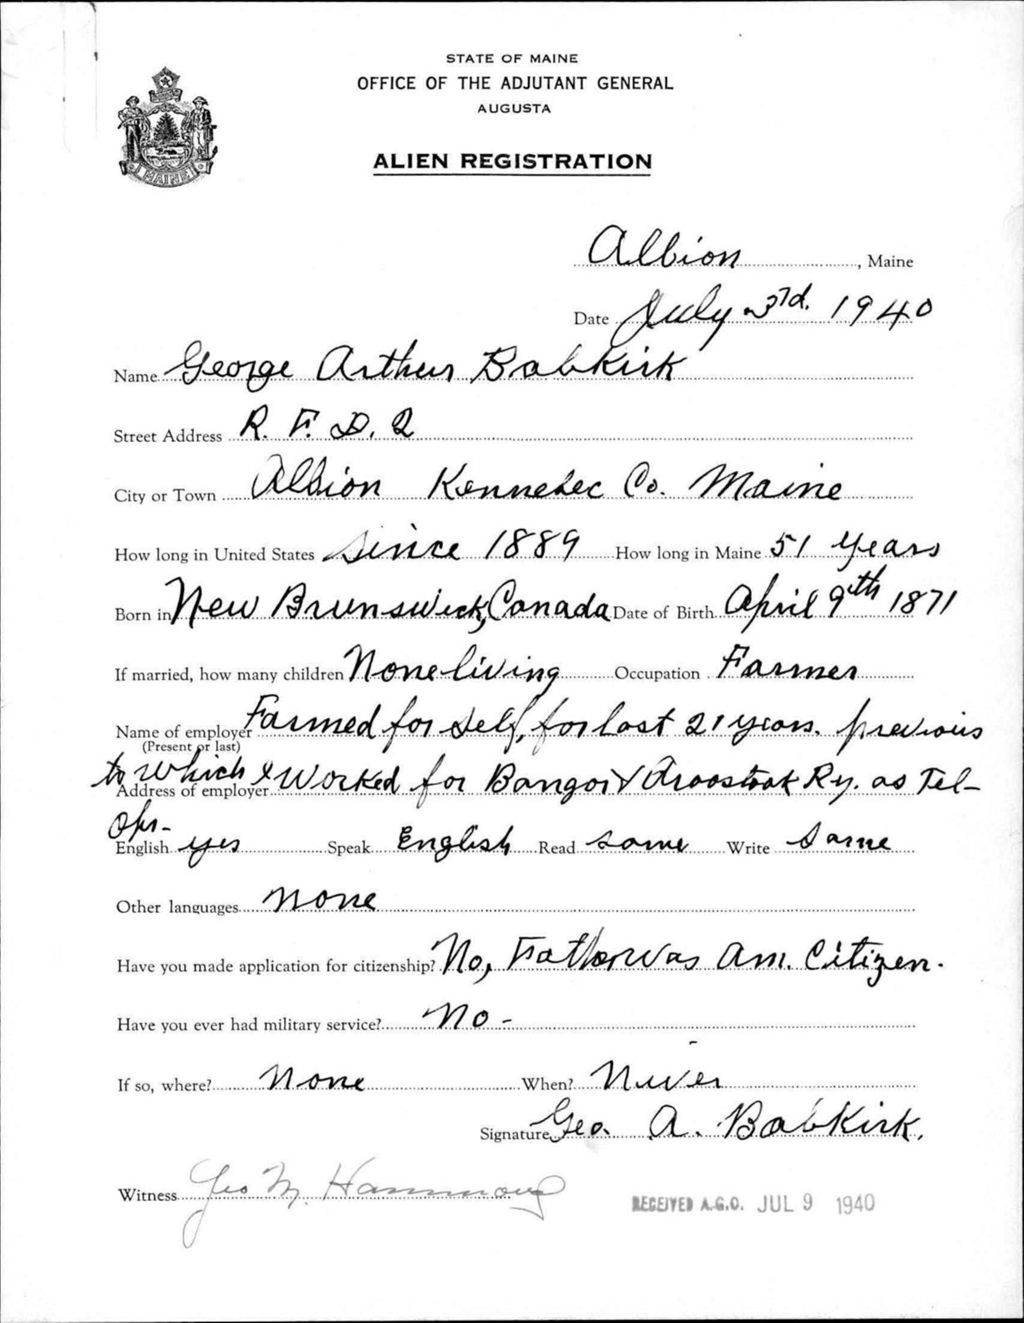 STATE OF MAINE
OFFICE OF THE ADJUTANT GENERAL
AUGUSTA
ALIEN REGISTRATION
MAINE
Albion, Maine
Date July 3rd. 1940
Name George Arthur Babkirk
Street Address R. F. D. 2
City or Town Albion Kennebec Co. Maine
How long in United States Since 1889 How long in Maine 51 years
Born in New Brunswick, Canada Date of Birth April 9th 1871
If married, how many children None living Occupation Farmer
Name of employer Farmed for self, for last 21 years. previous
(Present or last)
to which I worked for Bangor & Aroostook Ry. as Tel-
Address of employer
Opr-
English yes Speak English Read same Write Same
Other languages None
Have you made application for citizenship? No, Father was Am. Citizen.
Have you ever had military service? No -
If so, where? None When? Never
Signature Geo. A. Babkirk.
Witness Geo M Hammond
RECEIVED A.G.O. JUL 9 1940